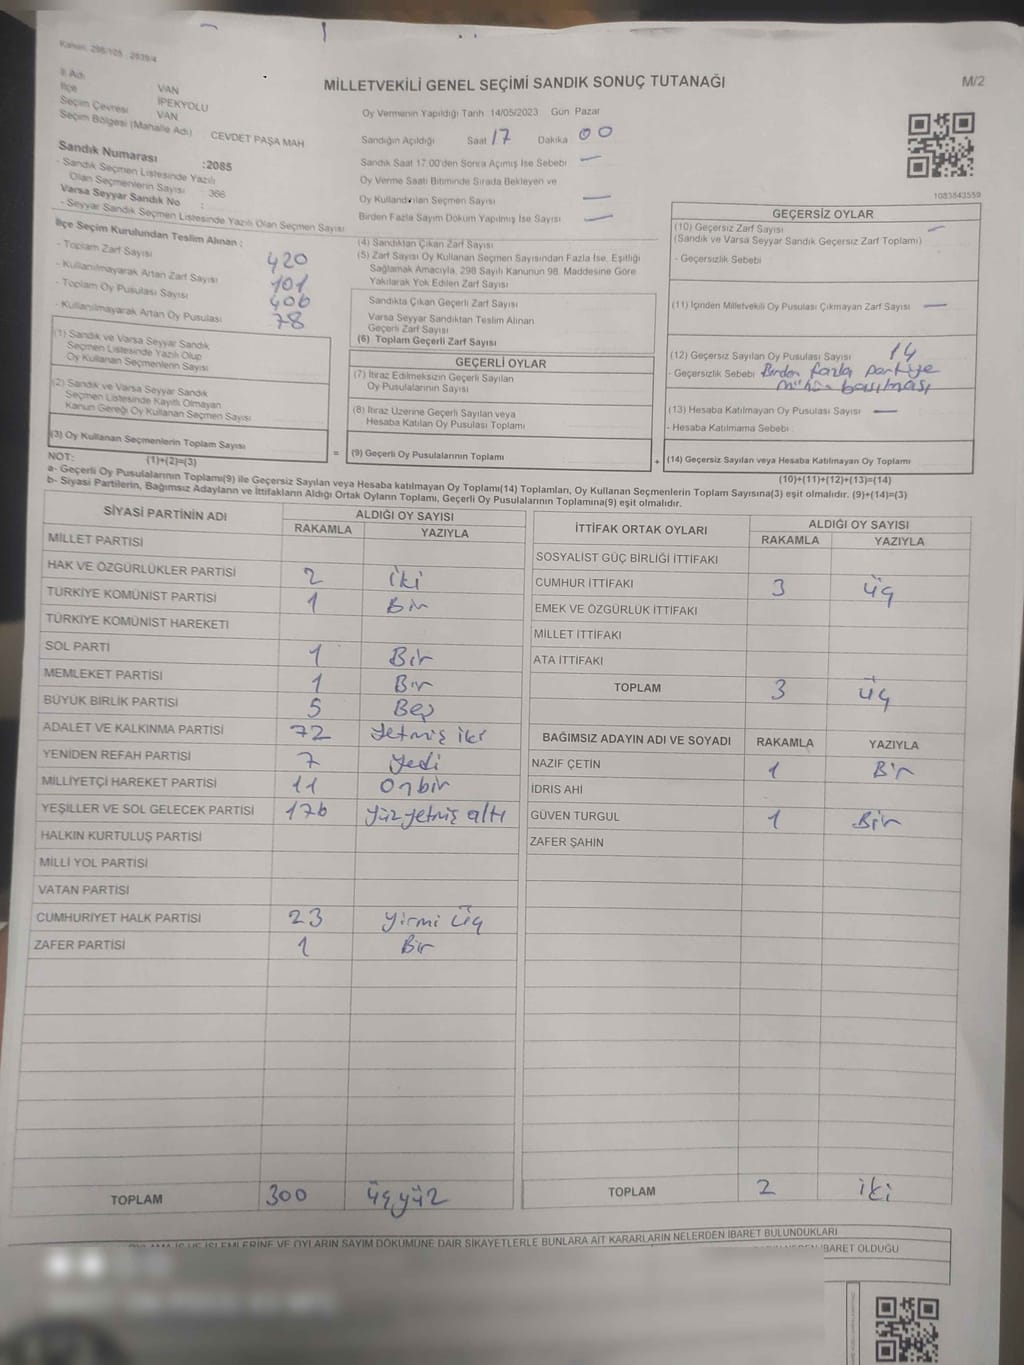 Kanun: 298/105 , 2839/4
MİLLETVEKİLİ GENEL SEÇİMİ SANDIK SONUÇ TUTANAĞI
M/2
İl Adı VAN
İlçe İPEKYOLU
Seçim Çevresi VAN
Seçim Bölgesi (Mahalle Adı) CEVDET PAŞA MAH
Sandık Numarası :2085
- Sandık Seçmen Listesinde Yazılı
Olan Seçmenlerin Sayısı : 366
Varsa Seyyar Sandık No :
- Seyyar Sandık Seçmen Listesinde Yazılı Olan Seçmen Sayısı
Oy Vermenin Yapıldığı Tarih 14/05/2023 Gün Pazar
Sandığın Açıldığı Saat 17 Dakika 00
Sandık Saat 17:00'den Sonra Açımış İse Sebebi —
Oy Verme Saati Bitiminde Sırada Bekleyen ve
Oy Kullandırılan Seçmen Sayısı —
Birden Fazla Sayım Döküm Yapılmış İse Sayısı —
1083843559
İlçe Seçim Kurulundan Teslim Alınan :
- Toplam Zarf Sayısı 420
- Kullanılmayarak Artan Zarf Sayısı 101
- Toplam Oy Pusulası Sayısı 406
- Kullanılmayarak Artan Oy Pusulası 78
(1) Sandık ve Varsa Seyyar Sandık
Seçmen Listesinde Yazılı Olup
Oy Kullanan Seçmenlerin Sayısı
(2) Sandık ve Varsa Seyyar Sandık
Seçmen Listesinde Kayıtlı Olmayan
Kanun Gereği Oy Kullanan Seçmen Sayısı
(3) Oy Kullanan Seçmenlerin Toplam Sayısı
(1)+(2)=(3)
(4) Sandıktan Çıkan Zarf Sayısı
(5) Zarf Sayısı Oy Kullanan Seçmen Sayısından Fazla İse, Eşitliği
Sağlamak Amacıyla, 298 Sayılı Kanunun 98. Maddesine Göre
Yakılarak Yok Edilen Zarf Sayısı
Sandıkta Çıkan Geçerli Zarf Sayısı
Varsa Seyyar Sandıktan Teslim Alınan
Geçerli Zarf Sayısı
(6) Toplam Geçerli Zarf Sayısı
GEÇERLİ OYLAR
(7) İtiraz Edilmeksizin Geçerli Sayılan
Oy Pusulalarının Sayısı
(8) İtiraz Üzerine Geçerli Sayılan veya
Hesaba Katılan Oy Pusulası Toplamı
= (9) Geçerli Oy Pusulalarının Toplamı
GEÇERSİZ OYLAR
(10) Geçersiz Zarf Sayısı —
(Sandık ve Varsa Seyyar Sandık Geçersiz Zarf Toplamı)
- Geçersizlik Sebebi
(11) İçinden Milletvekili Oy Pusulası Çıkmayan Zarf Sayısı —
(12) Geçersiz Sayılan Oy Pusulası Sayısı 14
- Geçersizlik Sebebi Birden fazla partiye
mühür basılması
(13) Hesaba Katılmayan Oy Pusulası Sayısı —
- Hesaba Katılmama Sebebi :
+ (14) Geçersiz Sayılan veya Hesaba Katılmayan Oy Toplamı
(10)+(11)+(12)+(13)=(14)
NOT:
a- Geçerli Oy Pusulalarının Toplamı(9) ile Geçersiz Sayılan veya Hesaba katılmayan Oy Toplamı(14) Toplamları, Oy Kullanan Seçmenlerin Toplam Sayısına(3) eşit olmalıdır. (9)+(14)=(3)
b- Siyasi Partilerin, Bağımsız Adayların ve İttifakların Aldığı Ortak Oyların Toplamı, Geçerli Oy Pusulalarının Toplamına(9) eşit olmalıdır.
SİYASİ PARTİNİN ADI ALDIĞI OY SAYISI
RAKAMLA YAZIYLA
MİLLET PARTİSİ
HAK VE ÖZGÜRLÜKLER PARTİSİ 2 iki
TÜRKİYE KOMÜNİST PARTİSİ 1 Bir
TÜRKİYE KOMÜNİST HAREKETİ
SOL PARTİ 1 Bir
MEMLEKET PARTİSİ 1 Bir
BÜYÜK BİRLİK PARTİSİ 5 Beş
ADALET VE KALKINMA PARTİSİ 72 Yetmiş iki
YENİDEN REFAH PARTİSİ 7 Yedi
MİLLİYETÇİ HAREKET PARTİSİ 11 Onbir
YEŞİLLER VE SOL GELECEK PARTİSİ 176 Yüzyetmiş altı
HALKIN KURTULUŞ PARTİSİ
MİLLİ YOL PARTİSİ
VATAN PARTİSİ
CUMHURİYET HALK PARTİSİ 23 Yirmi üç
ZAFER PARTİSİ 1 Bir
TOPLAM 300 üçyüz
İTTİFAK ORTAK OYLARI ALDIĞI OY SAYISI
RAKAMLA YAZIYLA
SOSYALİST GÜÇ BİRLİĞİ İTTİFAKI
CUMHUR İTTİFAKI 3 üç
EMEK VE ÖZGÜRLÜK İTTİFAKI
MİLLET İTTİFAKI
ATA İTTİFAKI
TOPLAM 3 üç
BAĞIMSIZ ADAYIN ADI VE SOYADI RAKAMLA YAZIYLA
NAZİF ÇETİN 1 Bir
İDRİS AHİ
GÜVEN TURGUL 1 Bir
ZAFER ŞAHİN
TOPLAM 2 iki
İŞLEMLERİNE VE OYLARIN SAYIM DÖKÜMÜNE DAİR ŞİKAYETLERLE BUNLARA AİT KARARLARIN NELERDEN İBARET BULUNDUKLARI
İBARET OLDUĞU